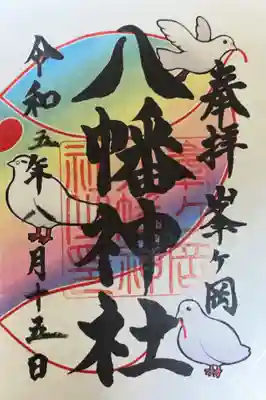 奉拝 峯ヶ岡
八幡神社
令和五年八月十五日